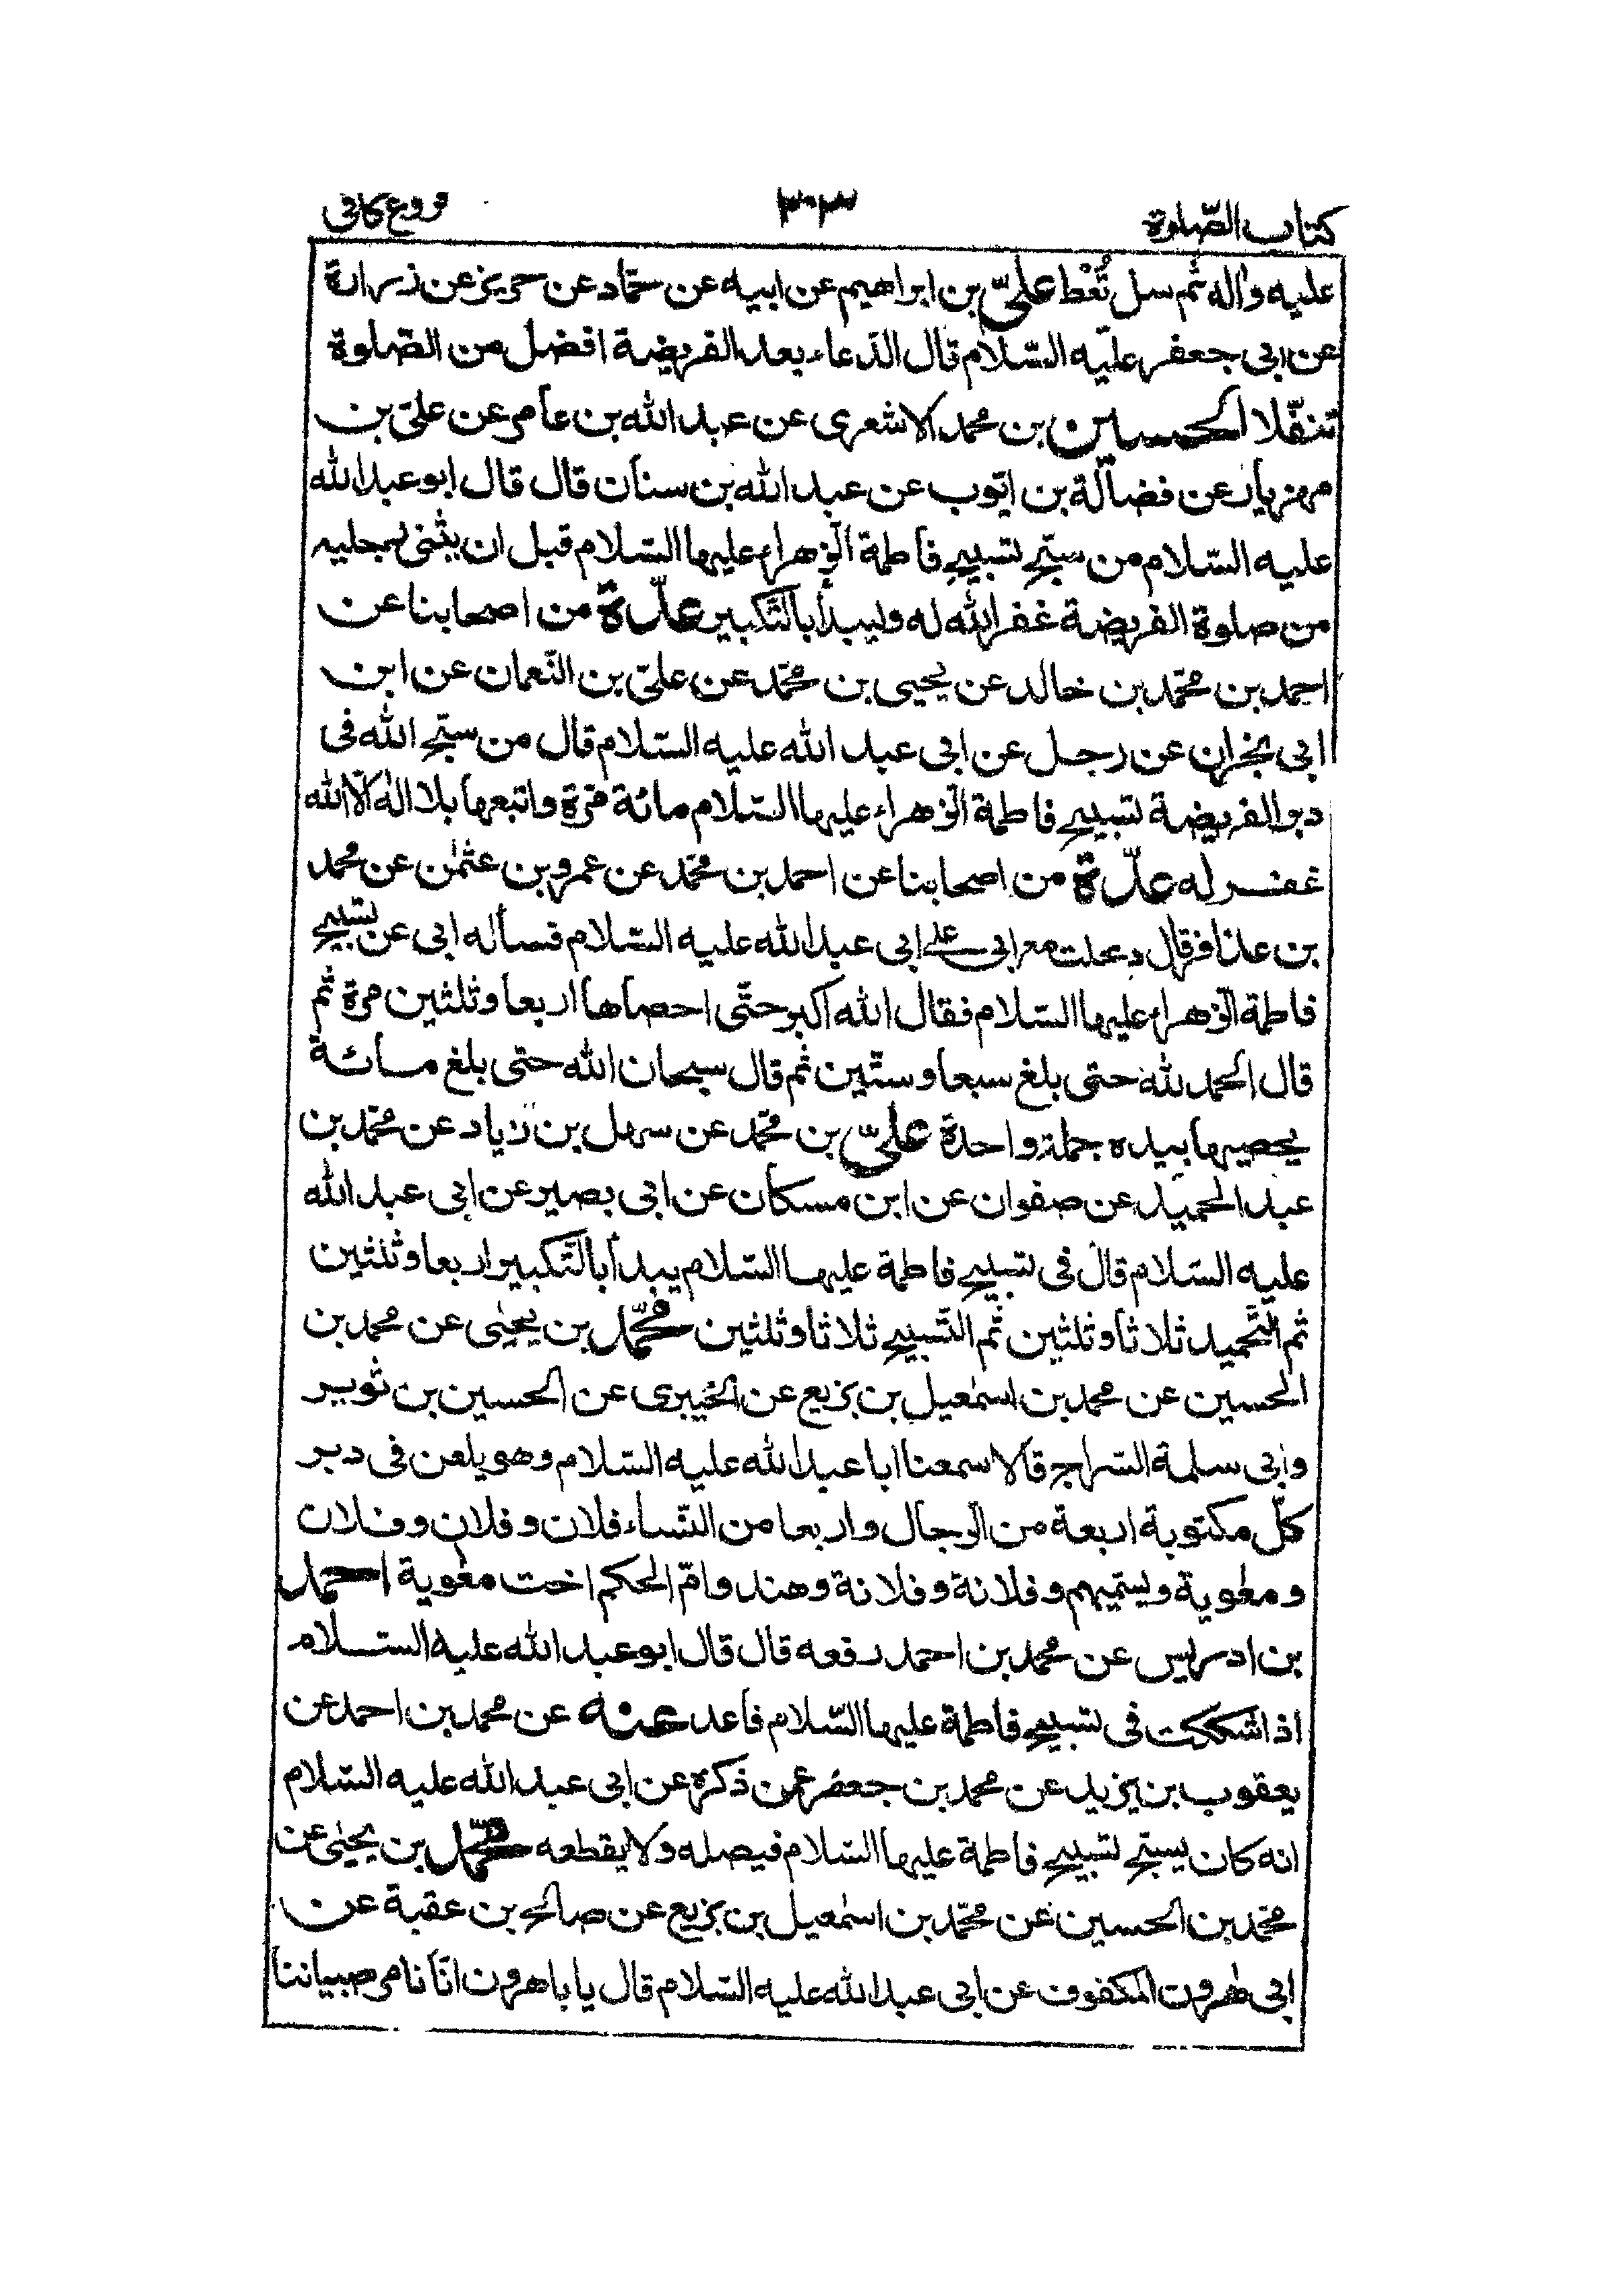 كتاب الصّلوة ٣٠٣ فروع كافى
عليه واٰله ثم سل تُعْطَ علىّ بن ابراهيم عن ابيه عن حمّاد عن حريز عن زرارة
عن ابى جعفر عليه السّلام قال الدّعاء بعد الفريضة افضل من الصّلوة
تنفّلا الحسين بن محمد الاشعرى عن عبد الله بن عامر عن علىّ بن
مهزيار عن فضالة بن ايّوب عن عبد الله بن سنان قال قال ابو عبد الله
عليه السّلام من سبّح تسبيح فاطمة الزّهراء عليها السّلام قبل ان يثنى رجليه
من صلوة الفريضة غفر الله له وليبدأ بالتّكبير عدّة من اصحابنا عن
احمد بن محمّد بن خالد عن يحيى بن محمّد عن علىّ بن النّعمان عن ابن
ابى نجران عن رجل عن ابى عبد الله عليه السّلام قال من سبّح الله فى
دبر الفريضة تسبيح فاطمة الزّهراء عليها السّلام مائة مرّة واتبعها بلا الٰه الّا الله
غفر له عدّة من اصحابنا عن احمد بن محمّد عن عمرو بن عثمٰن عن محمد
بن عذافر قال دخلت مع ابى على ابى عبد الله عليه السّلام فسأله ابى عن تسبيح
فاطمة الزّهراء عليها السّلام فقال الله اكبر حتّى احصاها اربعا وثلثين مرة ثم
قال الحمد لله حتى بلغ سبعا وستّين ثم قال سبحان الله حتى بلغ مائة
يحصيها بيده جملة واحدة علىّ بن محمّد عن سهل بن زياد عن محمّد بن
عبد الحميد عن صفوان عن ابن مسكان عن ابى بصير عن ابى عبد الله
عليه السّلام قال فى تسبيح فاطمة عليها السّلام يبدأ بالتّكبير اربعا وثلثين
ثم التّحميد ثلاثا وثلثين ثم التّسبيح ثلاثا وثلثين محمّد بن يحيٰى عن محمد بن
الحسين عن محمد بن اسمٰعيل بن بزيع عن الخيبرى عن الحسين بن ثوير
وابى سلمة السّراج قالا سمعنا ابا عبد الله عليه السّلام وهو يلعن فى دبر
كلّ مكتوبة اربعة من الرّجال واربعا من النّساء فلان وفلان وفلان
ومعٰوية ويسمّيهم وفلانة وفلانة وهند وامّ الحكم اخت معٰوية احمد
بن ادريس عن محمد بن احمد رفعه قال قال ابو عبد الله عليه السّلام
اذا شككت فى تسبيح فاطمة عليها السّلام فاعد عنه عن محمد بن احمد عن
يعقوب بن يزيد عن محمد بن جعفر عمن ذكره عن ابى عبد الله عليه السّلام
انه كان يسبّح تسبيح فاطمة عليها السّلام فيصله ولا يقطعه محمّد بن يحيٰى عن
محمّد بن الحسين عن محمّد بن اسمٰعيل بن بزيع عن صالح بن عقبة عن
ابى هٰرون المكفوف عن ابى عبد الله عليه السّلام قال يا باهرون انّا نامر صبياننا